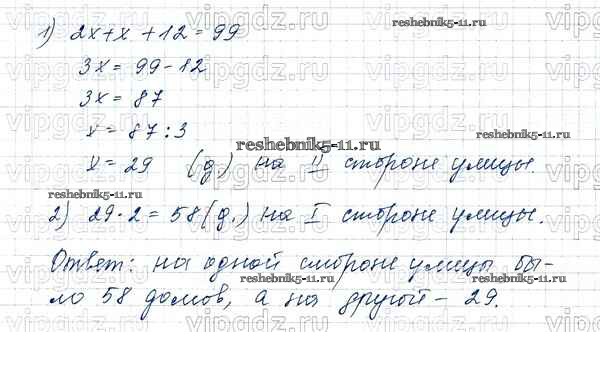 1) 2x+x+12=99
reshebnik5-11.ru
3x = 99-12
3x = 87
x = 87:3
reshebnik5-11.ru
reshebnik5-11.ru
x = 29 (д.) на II стороне улицы.
reshebnik5-11.ru
2) 29·2=58(д.) на I стороне улицы.
Ответ: на одной стороне улицы бы-
reshebnik5-11.ru
ло 58 домов, а на другой - 29.
vipgdz.ru vipgdz.ru vipgdz.ru